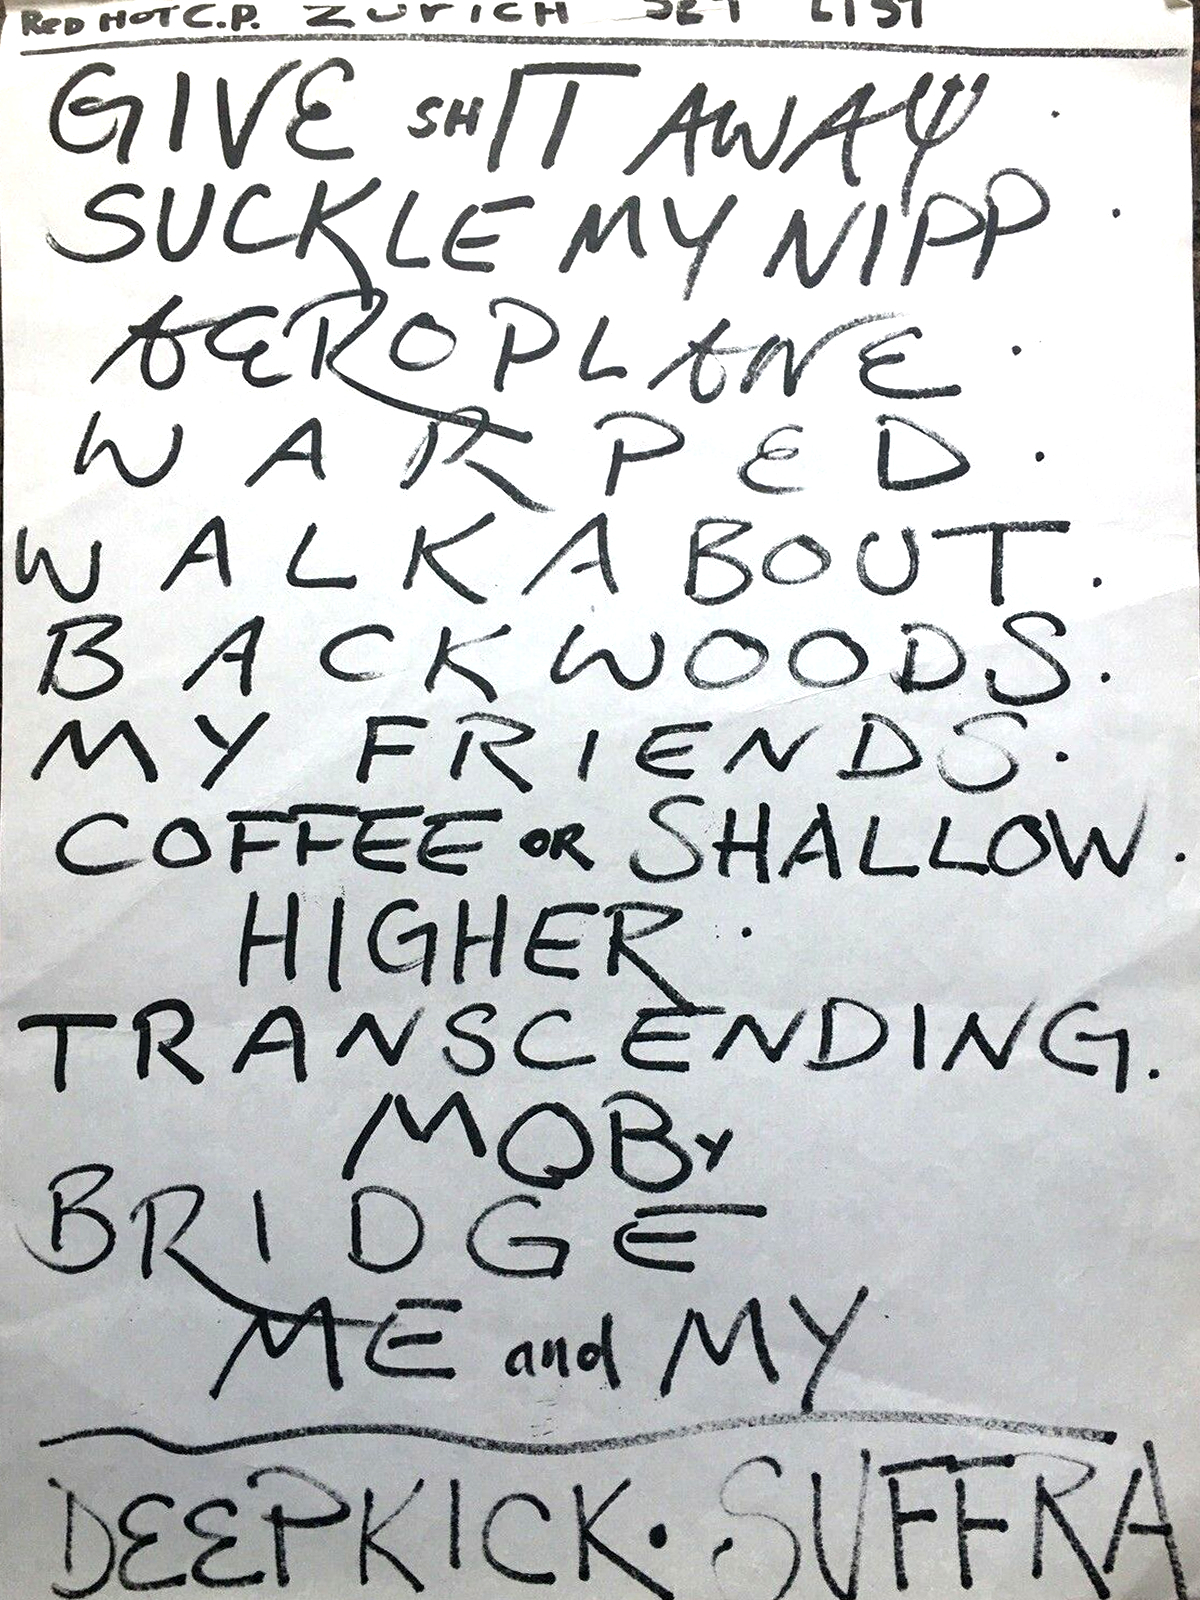 RED HOT C.P. ZURICH SET LIST
GIVE SHIT AWAY .
SUCKLE MY NIPP .
AEROPLANE .
WARPED .
WALKABOUT .
BACKWOODS .
MY FRIENDS .
COFFEE OR SHALLOW .
HIGHER .
TRANSCENDING .
MOBY
BRIDGE
ME and MY
DEEPKICK . SUFFRA